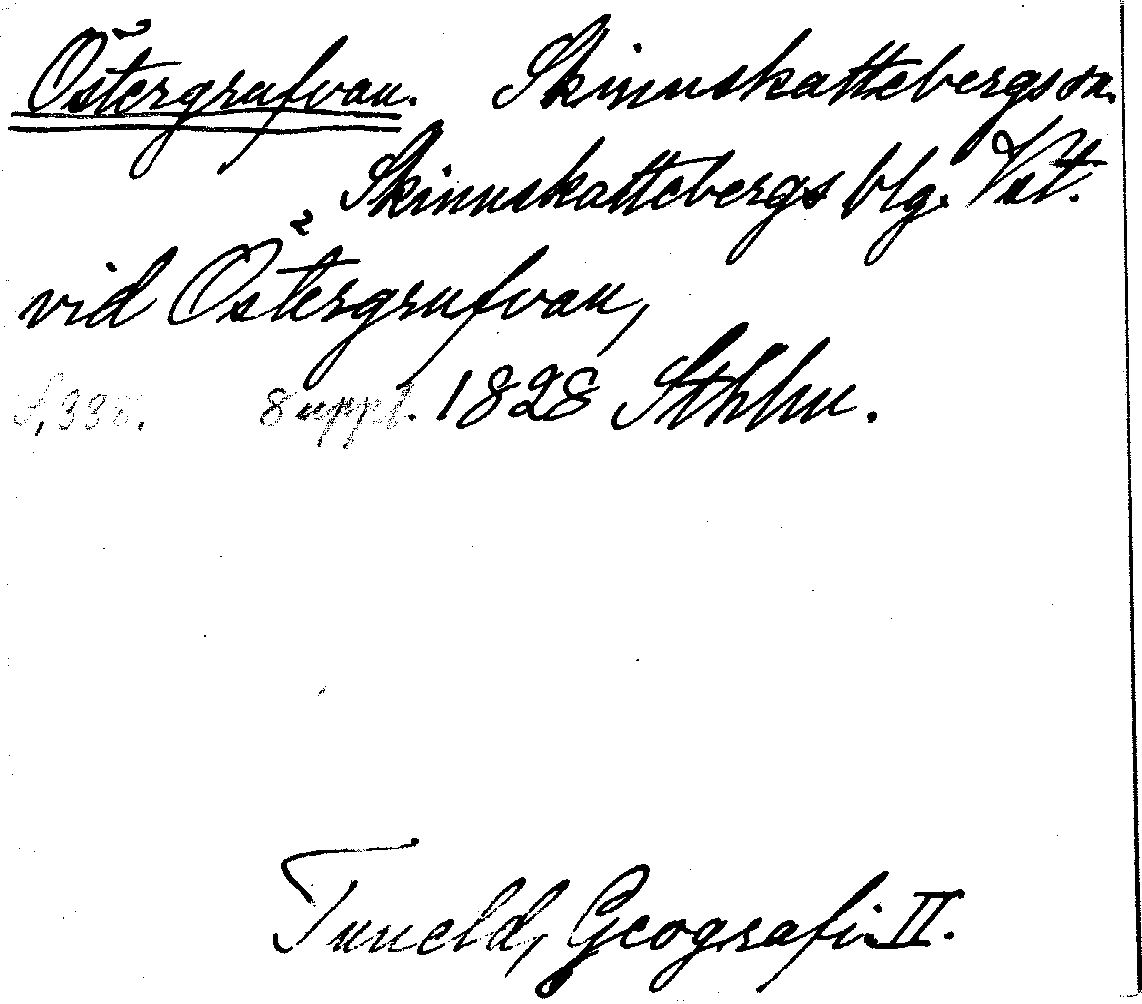 Östergrufvan. Skinnskattebergs sn.
Skinnskattebergs blg. Vst.
vid Östergrufvan,
S. 335. Suppl. 1828 Sthlm.
Tuneld, Geografi II.